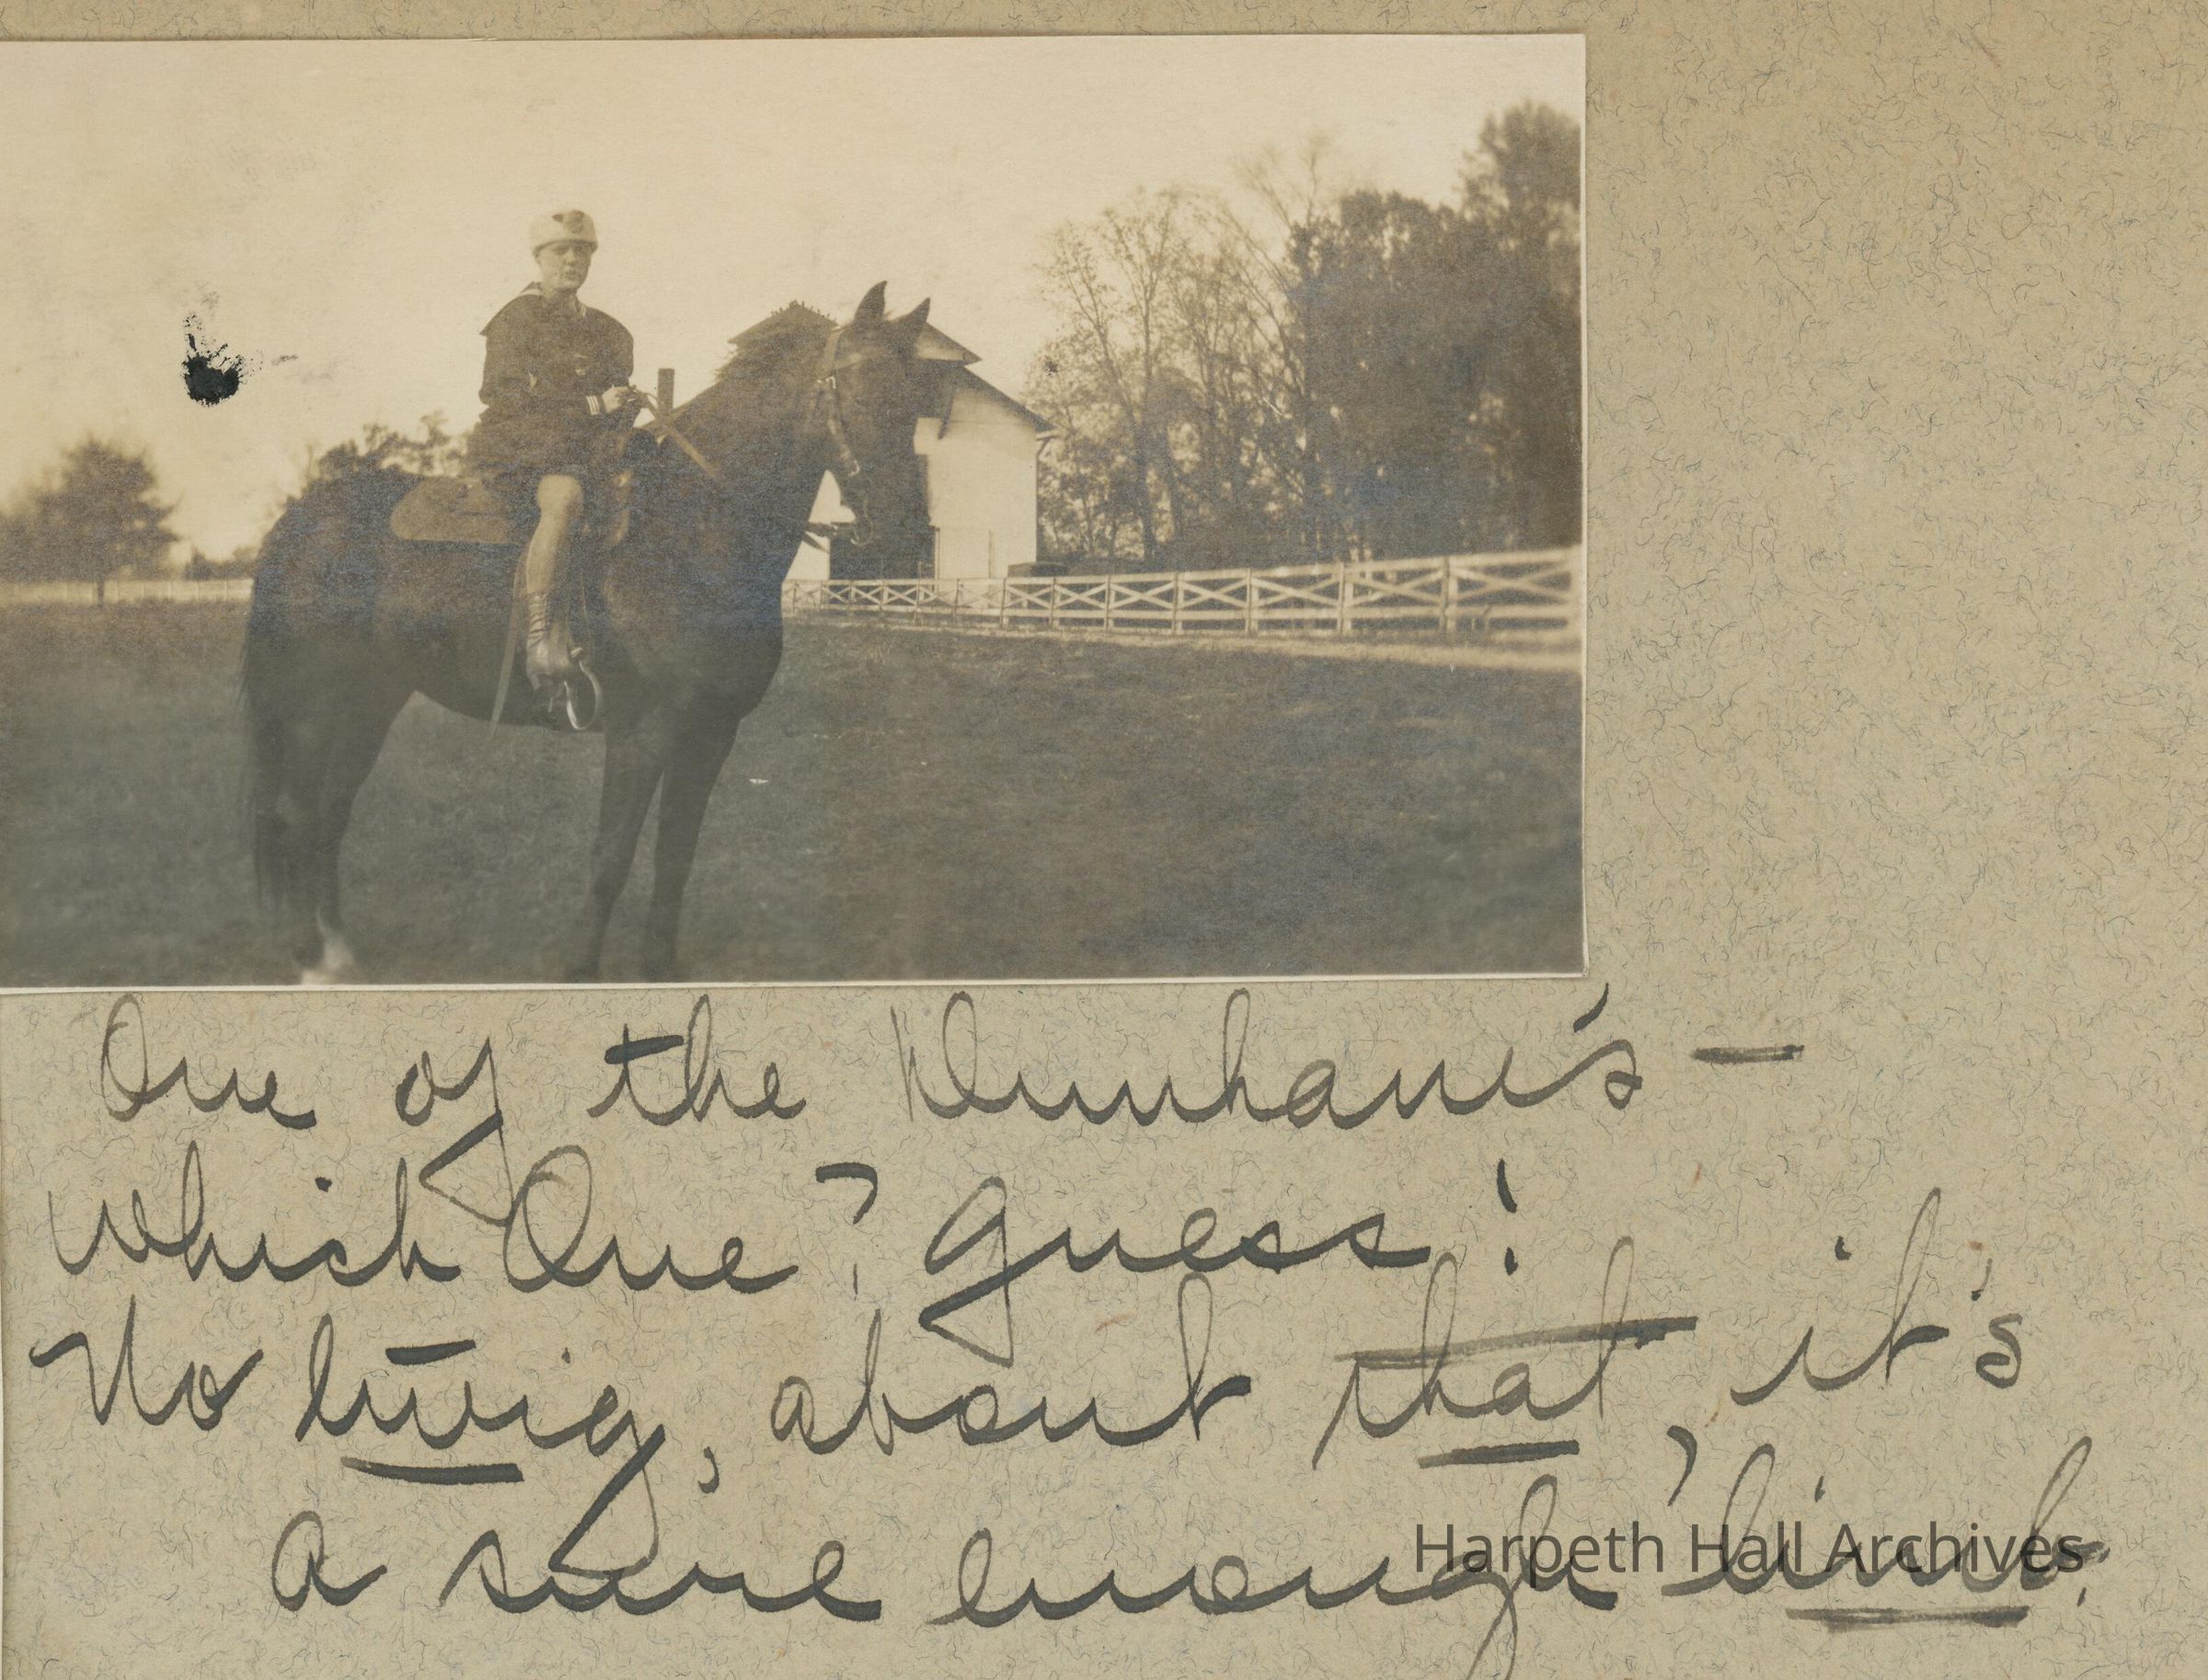 One of the Dunham's —
which One? Guess!
No twig, about that, it's
a sure enough limb.
Harpeth Hall Archives